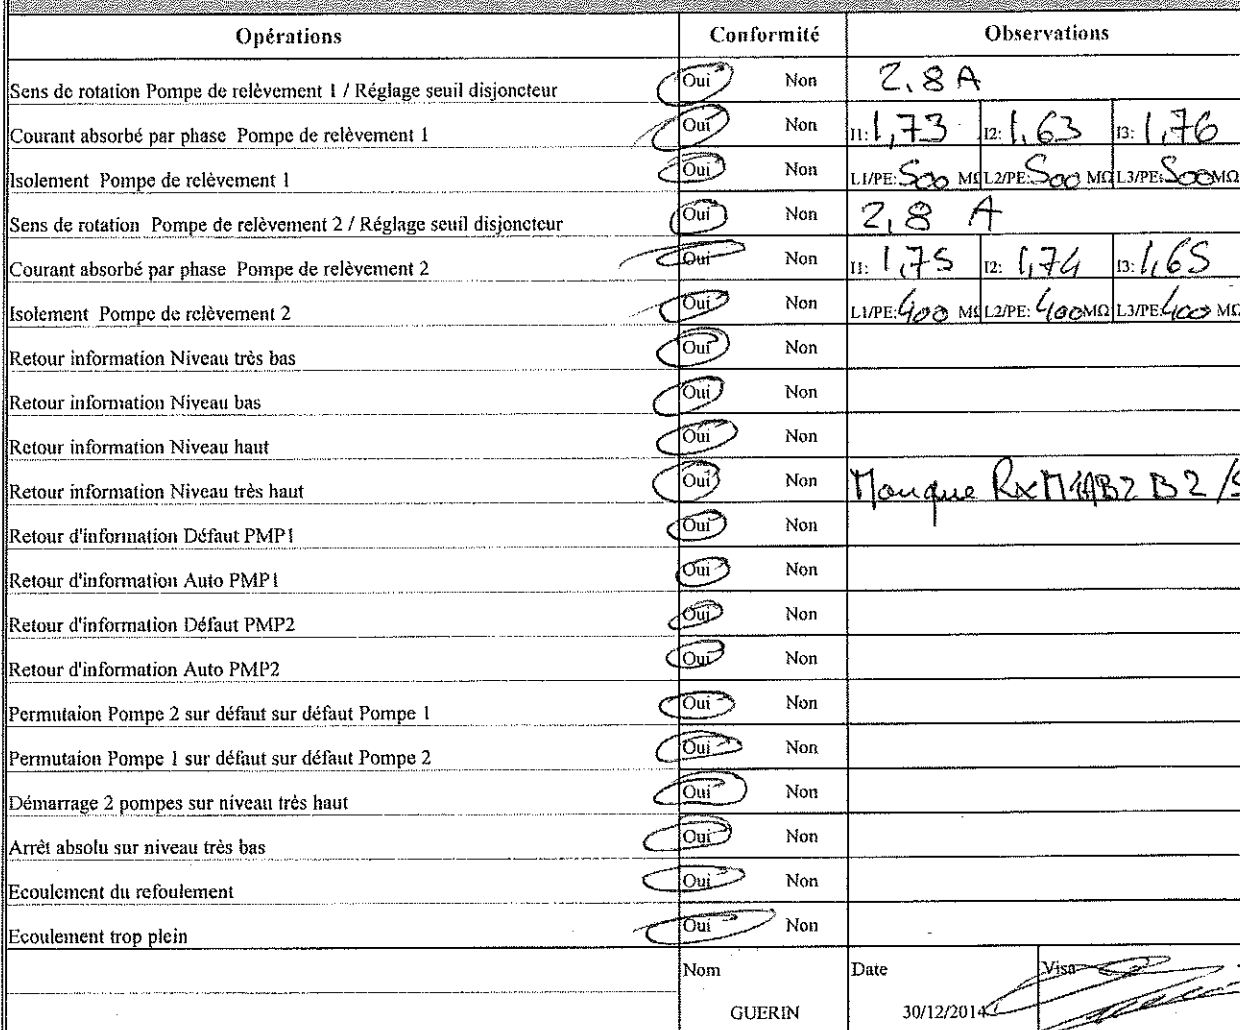 Opérations Conformité Observations
Sens de rotation Pompe de relèvement 1 / Réglage seuil disjoncteur Oui Non 2,8 A
Courant absorbé par phase Pompe de relèvement 1 Oui Non I1: 1,73 I2: 1,63 I3: 1,76
Isolement Pompe de relèvement 1 Oui Non L1/PE: 500 MΩ L2/PE: 500 MΩ L3/PE: 500 MΩ
Sens de rotation Pompe de relèvement 2 / Réglage seuil disjoncteur Oui Non 2,8 A
Courant absorbé par phase Pompe de relèvement 2 Oui Non I1: 1,75 I2: 1,74 I3: 1,65
Isolement Pompe de relèvement 2 Oui Non L1/PE: 400 MΩ L2/PE: 400 MΩ L3/PE: 400 MΩ
Retour information Niveau très bas Oui Non
Retour information Niveau bas Oui Non
Retour information Niveau haut Oui Non
Retour information Niveau très haut Oui Non Manque
Retour d'information Défaut PMP1 Oui Non
Retour d'information Auto PMP1 Oui Non
Retour d'information Défaut PMP2 Oui Non
Retour d'information Auto PMP2 Oui Non
Permutaion Pompe 2 sur défaut sur défaut Pompe 1 Oui Non
Permutaion Pompe 1 sur défaut sur défaut Pompe 2 Oui Non
Démarrage 2 pompes sur niveau très haut Oui Non
Arrêt absolu sur niveau très bas Oui Non
Ecoulement du refoulement Oui Non
Ecoulement trop plein Oui Non
Nom Date Visa
GUERIN 30/12/2014